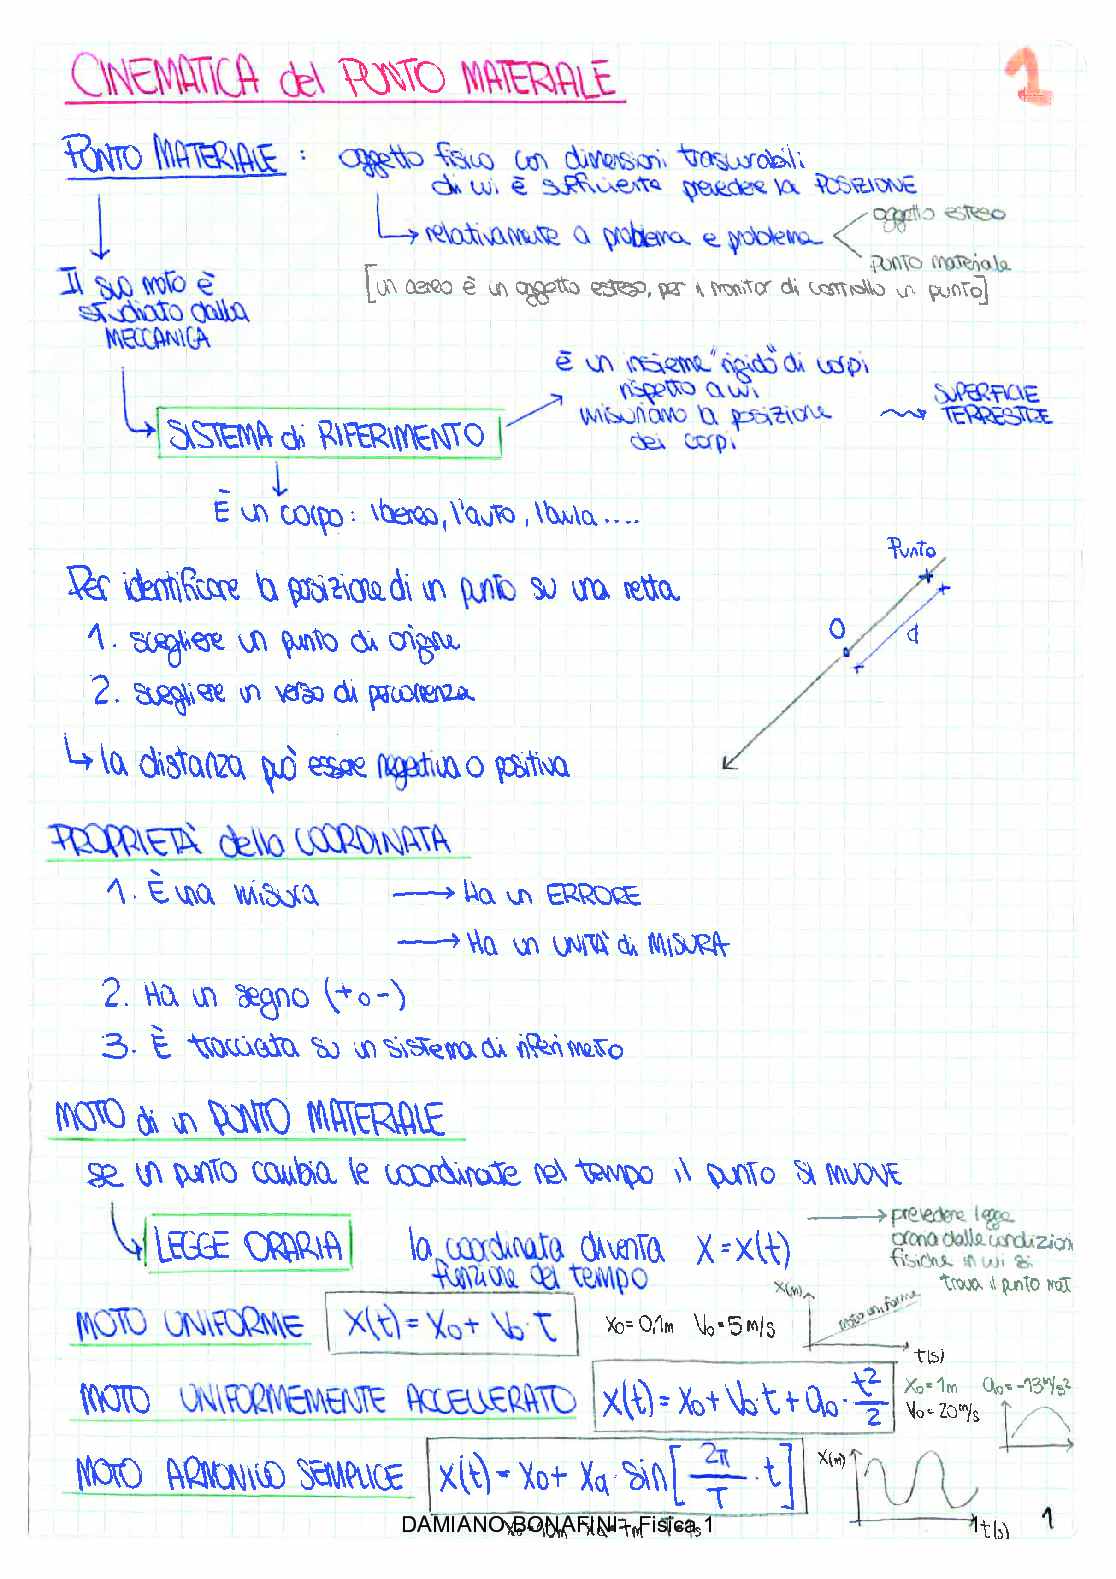 CINEMATICA del PUNTO MATERIALE
1
PUNTO MATERIALE : oggetto fisico con dimensioni trascurabili
di cui è sufficiente prevedere la POSIZIONE
relativamente a problema e problema
oggetto esteso
punto materiale
[un aereo è un oggetto esteso, per il monitor di controllo un punto]
Il suo moto è
studiato dalla
MECCANICA
SISTEMA di RIFERIMENTO
è un insieme "rigido" di corpi
rispetto a cui
misuriamo la posizione
dei corpi
SUPERFICIE
TERRESTRE
È un corpo: l'aereo, l'auto, l'aula....
Per identificare la posizione di un punto su una retta
1. scegliere un punto di origine
2. scegliere un verso di percorrenza
la distanza può essere negativa o positiva
Punto
O
d
PROPRIETÀ della COORDINATA
1. È una misura
Ha un ERRORE
Ha un UNITÀ di MISURA
2. Ha un segno (+ o -)
3. È tracciata su un sistema di riferimeto
MOTO di un PUNTO MATERIALE
se un punto cambia le coordinate nel tempo il punto SI MUOVE
LEGGE ORARIA
la coordinata diventa x = x(t)
funzione del tempo
prevedere legge
oraria dalle condizioni
fisiche in cui si
trova il punto mat
MOTO UNIFORME
x(t) = x₀ + v₀ · t
x₀ = 0,1m v₀ = 5 m/s
x(m)
moto uniforme
t(s)
MOTO UNIFORMEMENTE ACCELLERATO
x(t) = x₀ + v₀ · t + a₀ · t²/2
x₀ = 1m a₀ = -13 m/s²
v₀ = 20 m/s
MOTO ARMONICO SEMPLICE
x(t) = x₀ + xₐ · sin[2π/T · t]
x(m)
t(s)
DAMIANO BONAFINI - Fisica 1
1